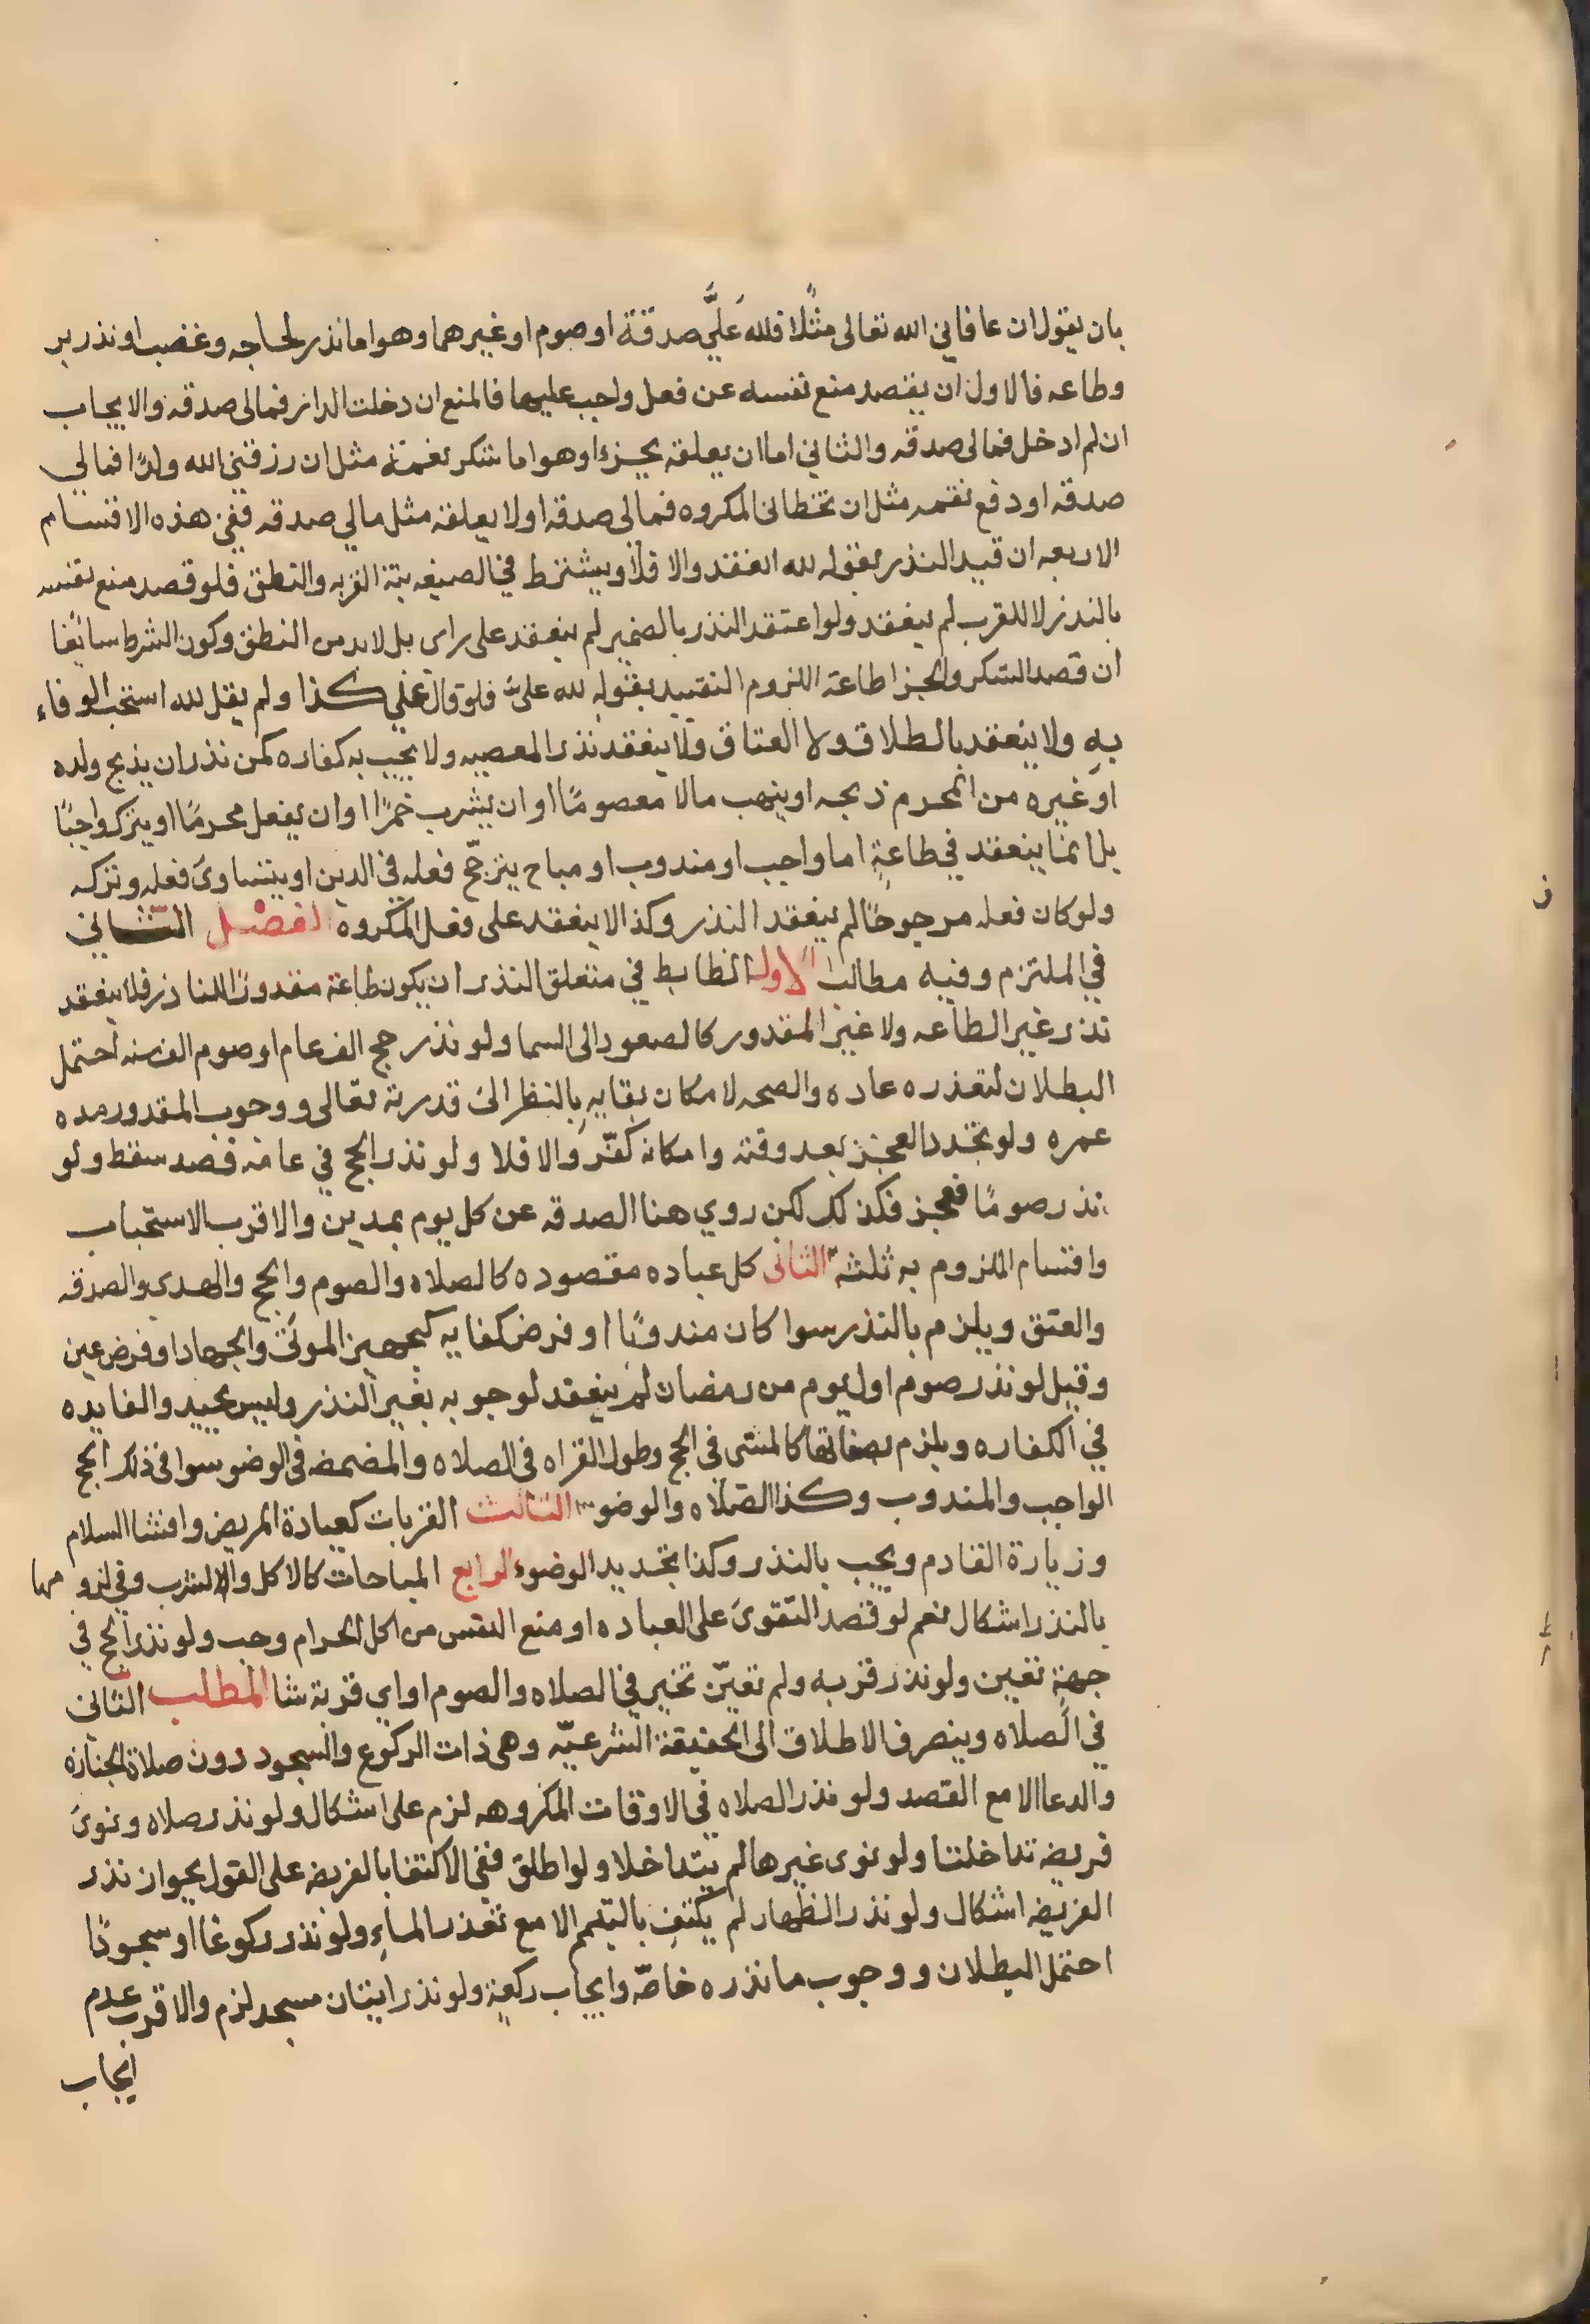 بان يقول ان عافاني الله تعالى مثلًا فلله عَليَّ صدقة او صوم او غيرهما وهو اما نذر لجاجه وغضب او نذر بر
وطاعه فالاول ان يقصد منع نفسه عن فعل واجب عليهما فالمنع ان دخلت الدار فمالى صدقه والايجاب
ان لم ادخل فمالى صدقه والثاني اما ان يعلقه بجزءا وهو اما شكر نعمة مثل ان رزقني الله ولدًا فمالي
صدقه او دفع نقمه مثل ان تخطانى المكروه فمالى صدقه او لا يعلقه مثل مالي صدقه ففى هذه الاقسام
الاربعه ان قيد النذر بقوله لله انعقد والا فلا ويشترط في الصيغه نية القربه والنطق فلو قصد منع نفسه
بالنذر لا للقرب لم ينعقد ولو اعتقد النذر بالضمير لم ينعقد على راى بل لابد من النطق وكون الشرط سائغا
ان قصد الشكر والجزا طاعته اللزوم التقييد بقوله لله علىَّ فلو قال علي كذا ولم يقل لله استحب الوفاء
به ولا ينعقد بالطلاق ولا العتاق ولا ينعقد نذر المعصيه ولا يجب به كفاره كمن نذر ان يذبح ولده
او غيره من المحرم ذبحه او ينهب مالا معصومًا او ان يشرب خمرًا او ان يفعل محرمًا او يترك واجبًا
بل انما ينعقد في طاعةٍ اما واجب او مندوب او مباح يترجّح فعله في الدين او يتساوى فعله وتركه
ولو كان فعله مرجوحًا لم ينعقد النذر وكذا لا ينعقد على فعل المكروه الفصل الثاني
في الملتزم وفيه مطالب الاول الضابط في متعلق النذر ان يكون طاعة مقدورًا للناذر فلا ينعقد
نذر غير الطاعه ولا غير المقدور كالصعود الى السما ولو نذر حج الف عام او صوم الف سنه احتمل
البطلان لتعذره عاده والصحه لامكان بقايه بالنظر الى قدرته تعالى ووجوب المقدور مده
عمره ولو تجدد العجز بعد وقته وامكانه كفّر والا فلا ولو نذر الحج في عامه فصد سقط ولو
نذر صومًا فعجز فكذلك لكن روي هنا الصدقه عن كل يوم بمدين والاقرب الاستحباب
واقسام الملزوم به ثلثة الثانى كل عباده مقصوده كالصلاه والصوم والحج والهدى والصدقه
والعتق ويلزم بالنذر سوا كان مندوبًا او فرض كفايه كتجهيز الموتى والجهاد او فرض عين
وقيل لو نذر صوم اول يوم من رمضان لم ينعقد لوجوبه بغير النذر وليس بجيد والفايده
في الكفاره ويلزم بصفاتها كالمشى فى الحج وطول القراه فى الصلاه والمضمضه فى الوضو سوا فى ذلك الحج
الواجب والمندوب وكذا الصلاه والوضو الثالث القربات كعيادة المريض وافشا السلام
وزيارة القادم ويجب بالنذر وكذا تجديد الوضوء الرابع المباحات كالاكل والشرب وفي لزومها
بالنذر اشكال نعم لو قصد التقوى على العباده او منع النفس من اكل الحرام وجب ولو نذر الحج في
جهةٍ تعين ولو نذر قربه ولم تعيّن تخير في الصلاه والصوم او اي قربة شا المطلب الثانى
في الصلاه وينصرف الاطلاق الى الحقيقة الشرعيّه وهى ذات الركوع والسجود دون صلاة الجنازه
والدعا الا مع القصد ولو نذر الصلاه في الاوقات المكروهه لزم على اشكال ولو نذر صلاه ونوى
فريضه تداخلتا ولو نوى غيرها لم يتداخلا ولو اطلق ففى الاكتفا بالفريضه على القول بجواز نذر
الفريضه اشكال ولو نذر الطهار لم يكتفِ بالتيمم الا مع تعذر الماءِ ولو نذر ركوعًا او سجودًا
احتمل البطلان ووجوب ما نذره خاصّه وايجاب ركعةٍ ولو نذر اتيان مسجد لزم والاقرب عدم
ايجاب